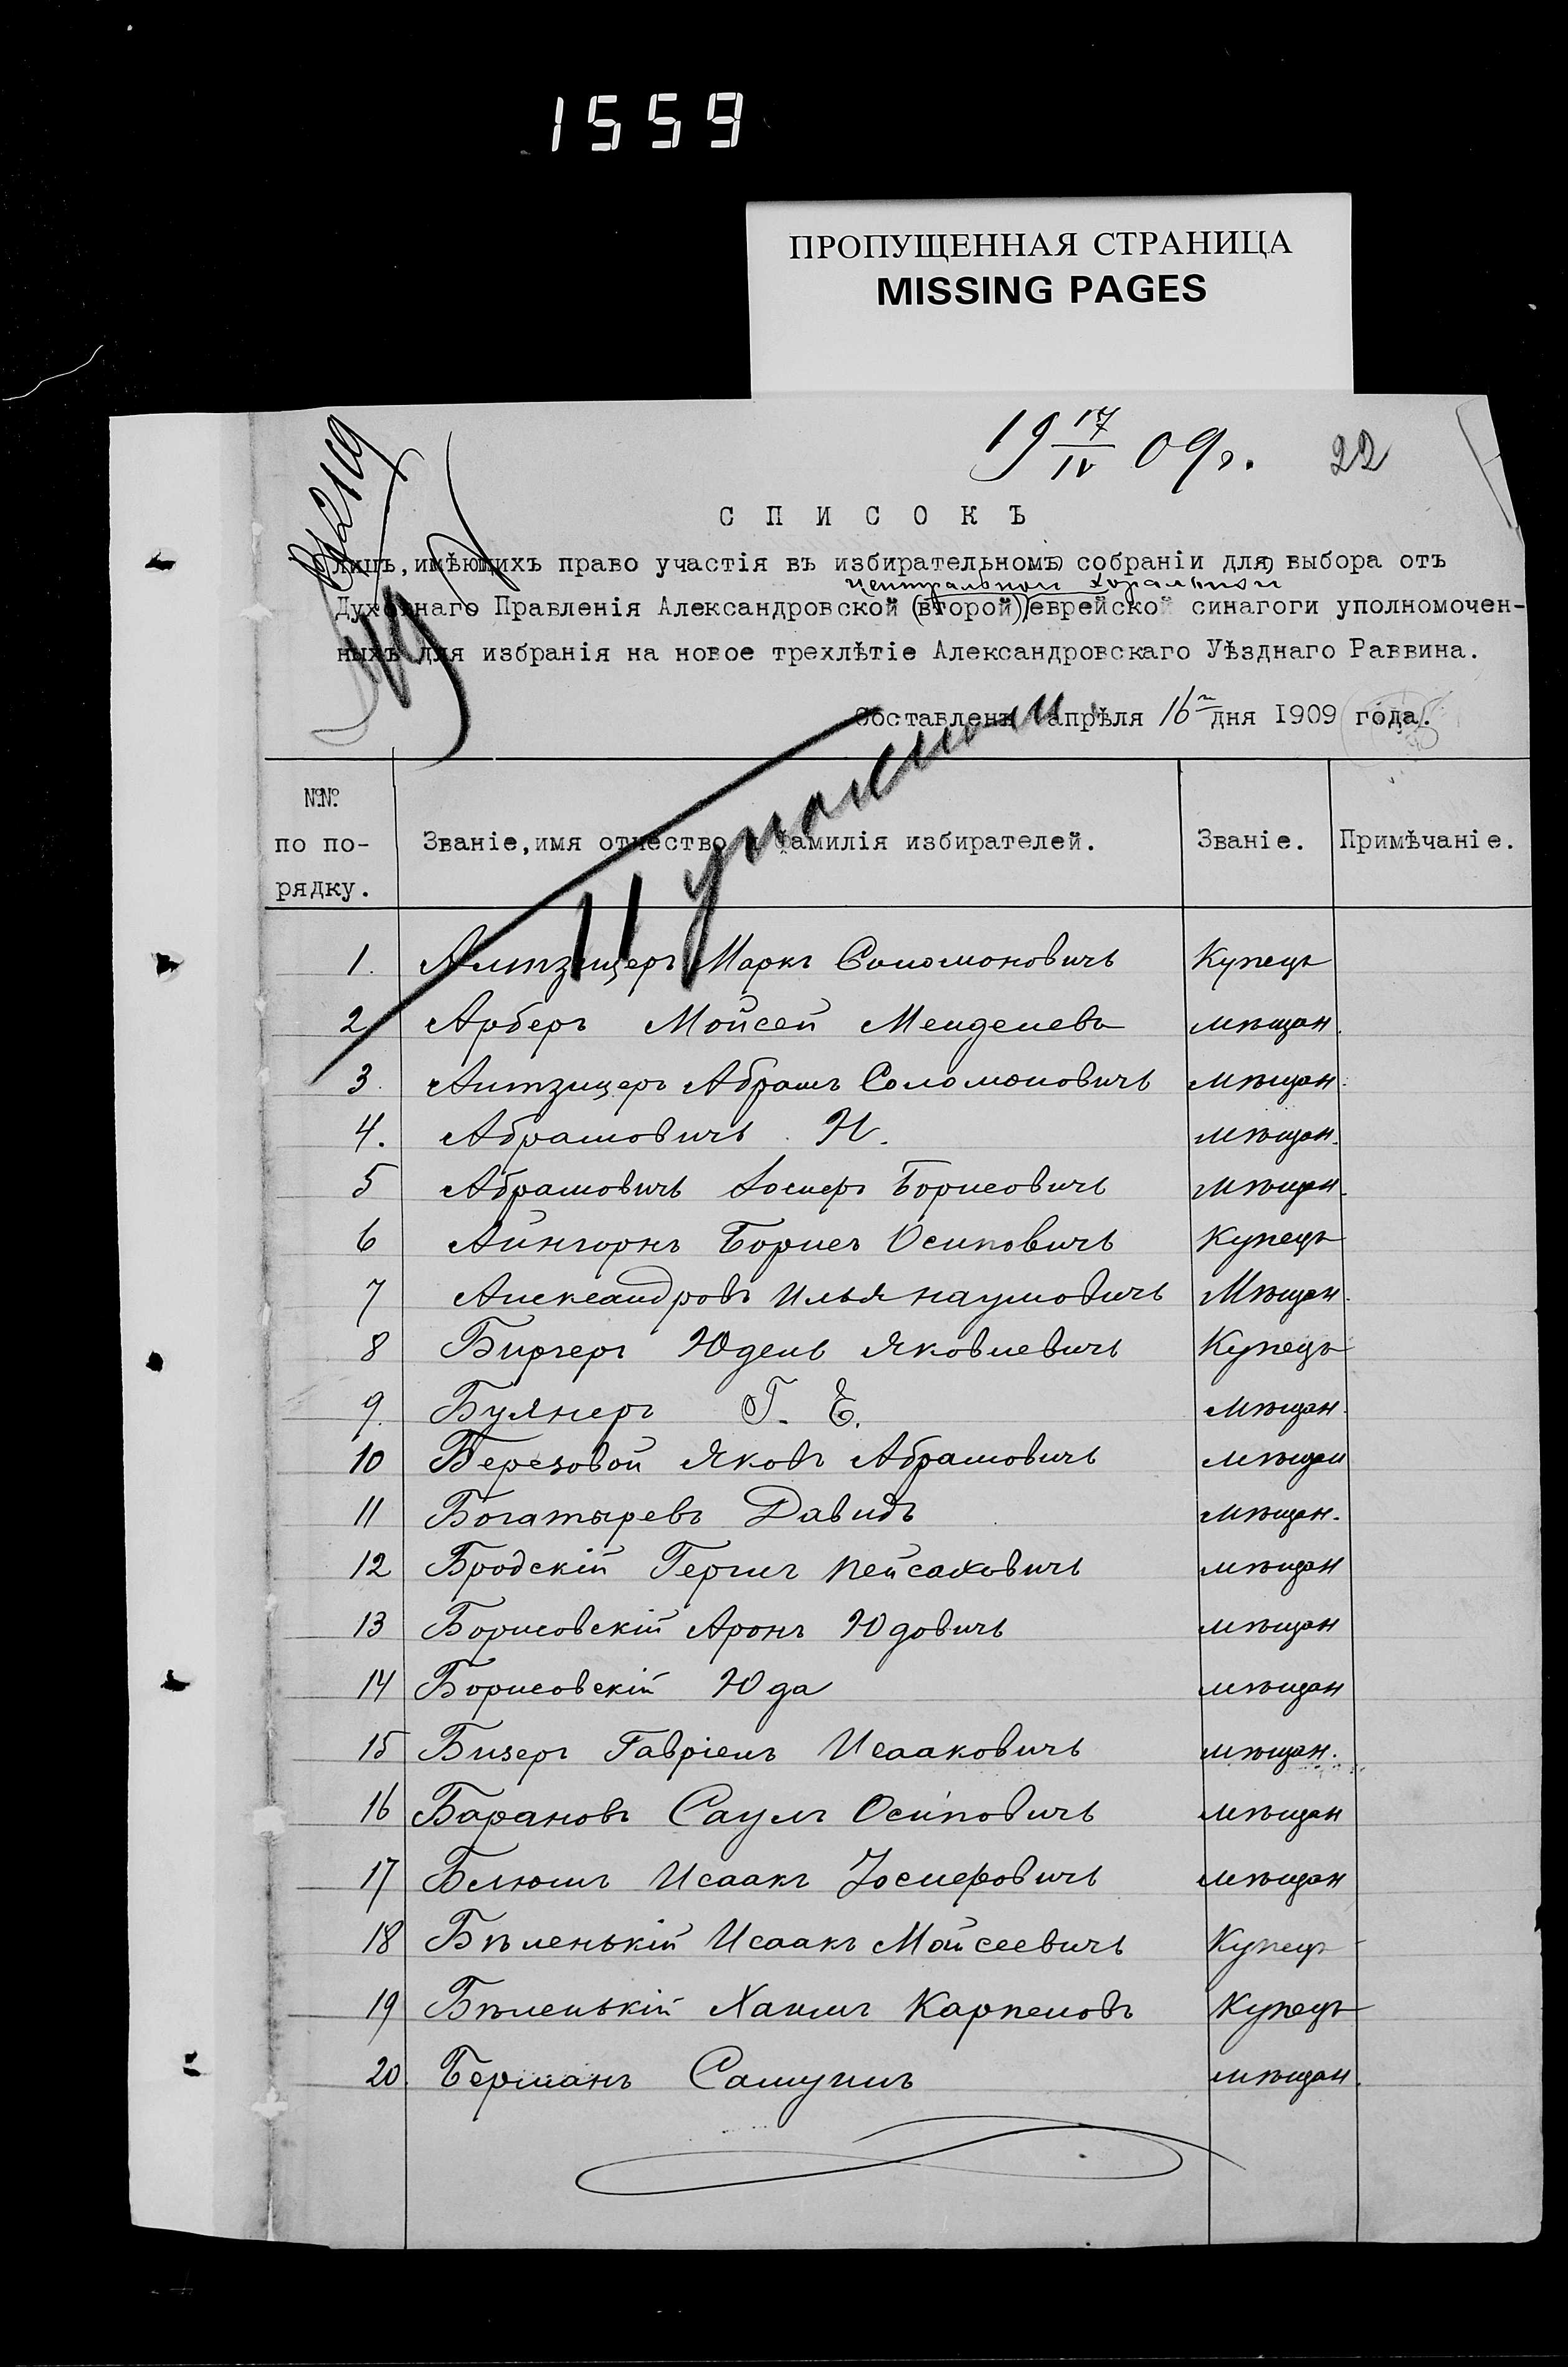 1559
ПРОПУЩЕННАЯ СТРАНИЦА
MISSING PAGES
19 17/IV 09 г. 22
СПИСОКЪ
лицъ, имѣющихъ право участія въ избирательномъ собраніи для выбора отъ
центральной хоральной
Духовнаго Правленія Александровской (второй) еврейской синагоги уполномочен-
ныхъ для избранія на новое трехлѣтіе Александровскаго Уѣзднаго Раввина.
Составленъ апрѣля 16го дня 1909 года.
№№ по по-рядку.
Званіе, имя отчество и фамилія избирателей.
Званіе.
Примѣчаніе.
1. Альтзицеръ Маркъ Соломоновичъ Купецъ
2 Арберъ Мойсей Менделевъ мѣщан.
3. Алтзицеръ Абрамъ Соломоновичъ мѣщан.
4. Абрамовичъ И. мѣщан.
5 Абрамовичъ Іосифъ Борисовичъ мѣщан.
6 Айнгорнъ Борисъ Осиповичъ Купецъ
7 Александровъ Илья Наумовичъ Мѣщан.
8 Биргеръ Юдель Яковлевичъ Купецъ
9. Буянеръ Г. Е. мѣщан.
10 Березовой Яковъ Абрамовичъ мѣщан
11 Богатыревъ Давидъ мѣщан.
12 Бродскій Гершъ Пейсаховичъ мѣщан
13 Борисовскій Аронъ Юдовичъ мѣщан
14 Борисовскій Юда мѣщан
15 Бизеръ Гавріелъ Исааковичъ мѣщан.
16 Барановъ Саулъ Осиповичъ мѣщан
17 Блюмъ Исаакъ Іосифовичъ мѣщан
18 Бѣленькій Исаакъ Мойсеевичъ Купецъ
19 Бѣленькій Хаимъ Карпеловъ Купецъ
20. Берманъ Самуилъ мѣщан.